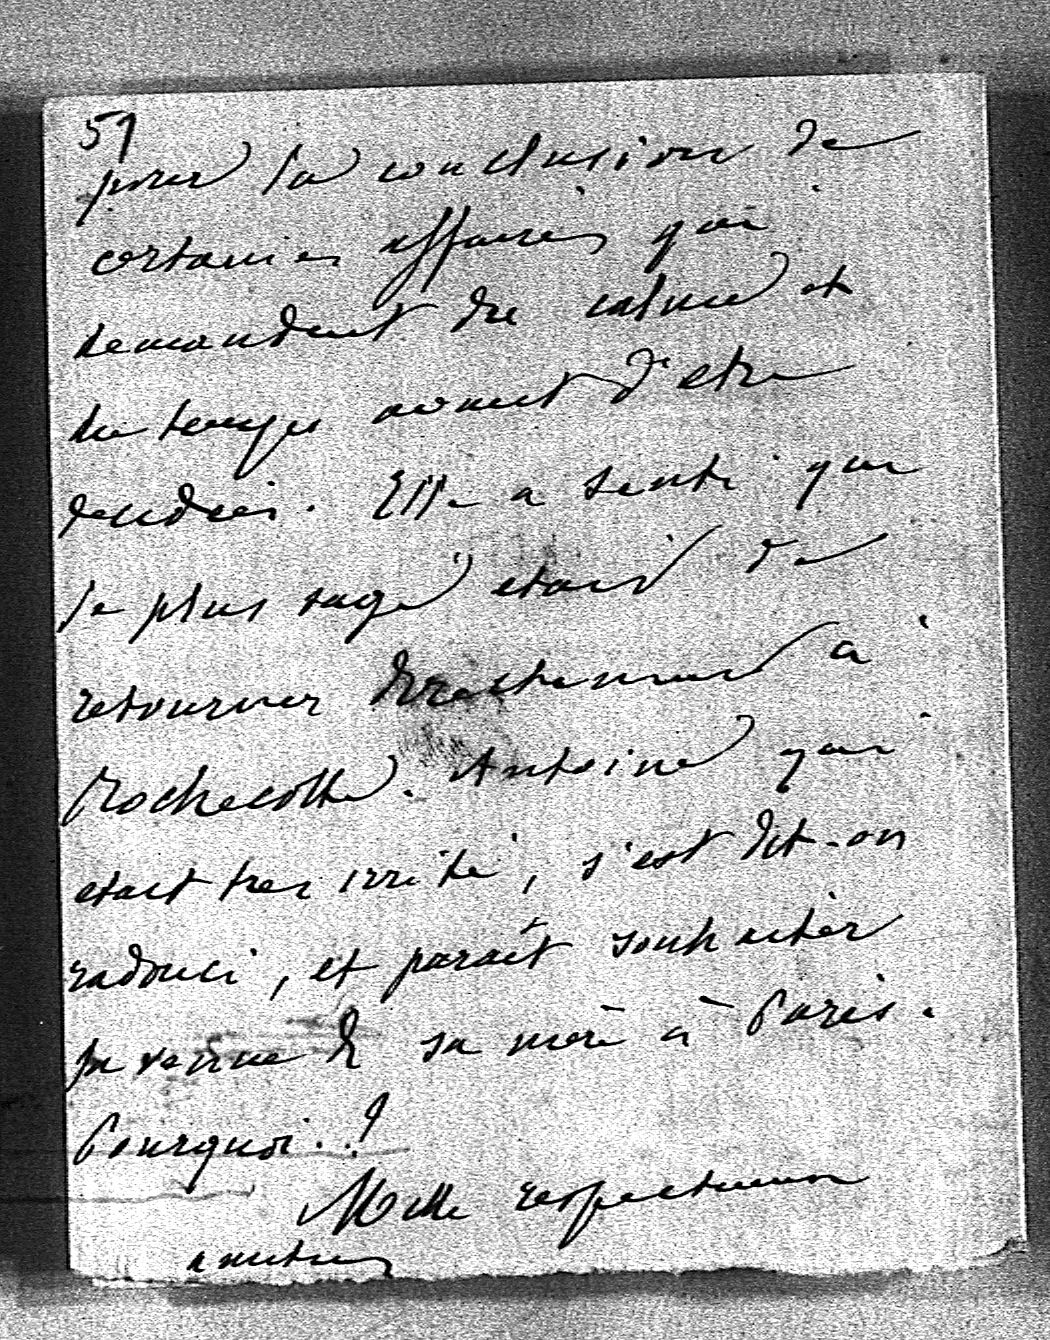 51
pour la conclusion de
certaines affaires qui
demandent du calme et
du temps avant d'etre
Elle a senti que
le plus sage etait de
retourner directement à
Rochecotte. Antoine qui
etait tres irrité, s'est dit-on
radouci, et paraît souhaiter
la venue de sa mère à Paris.
Pourquoi..?
Mille respectueuses
amitiés